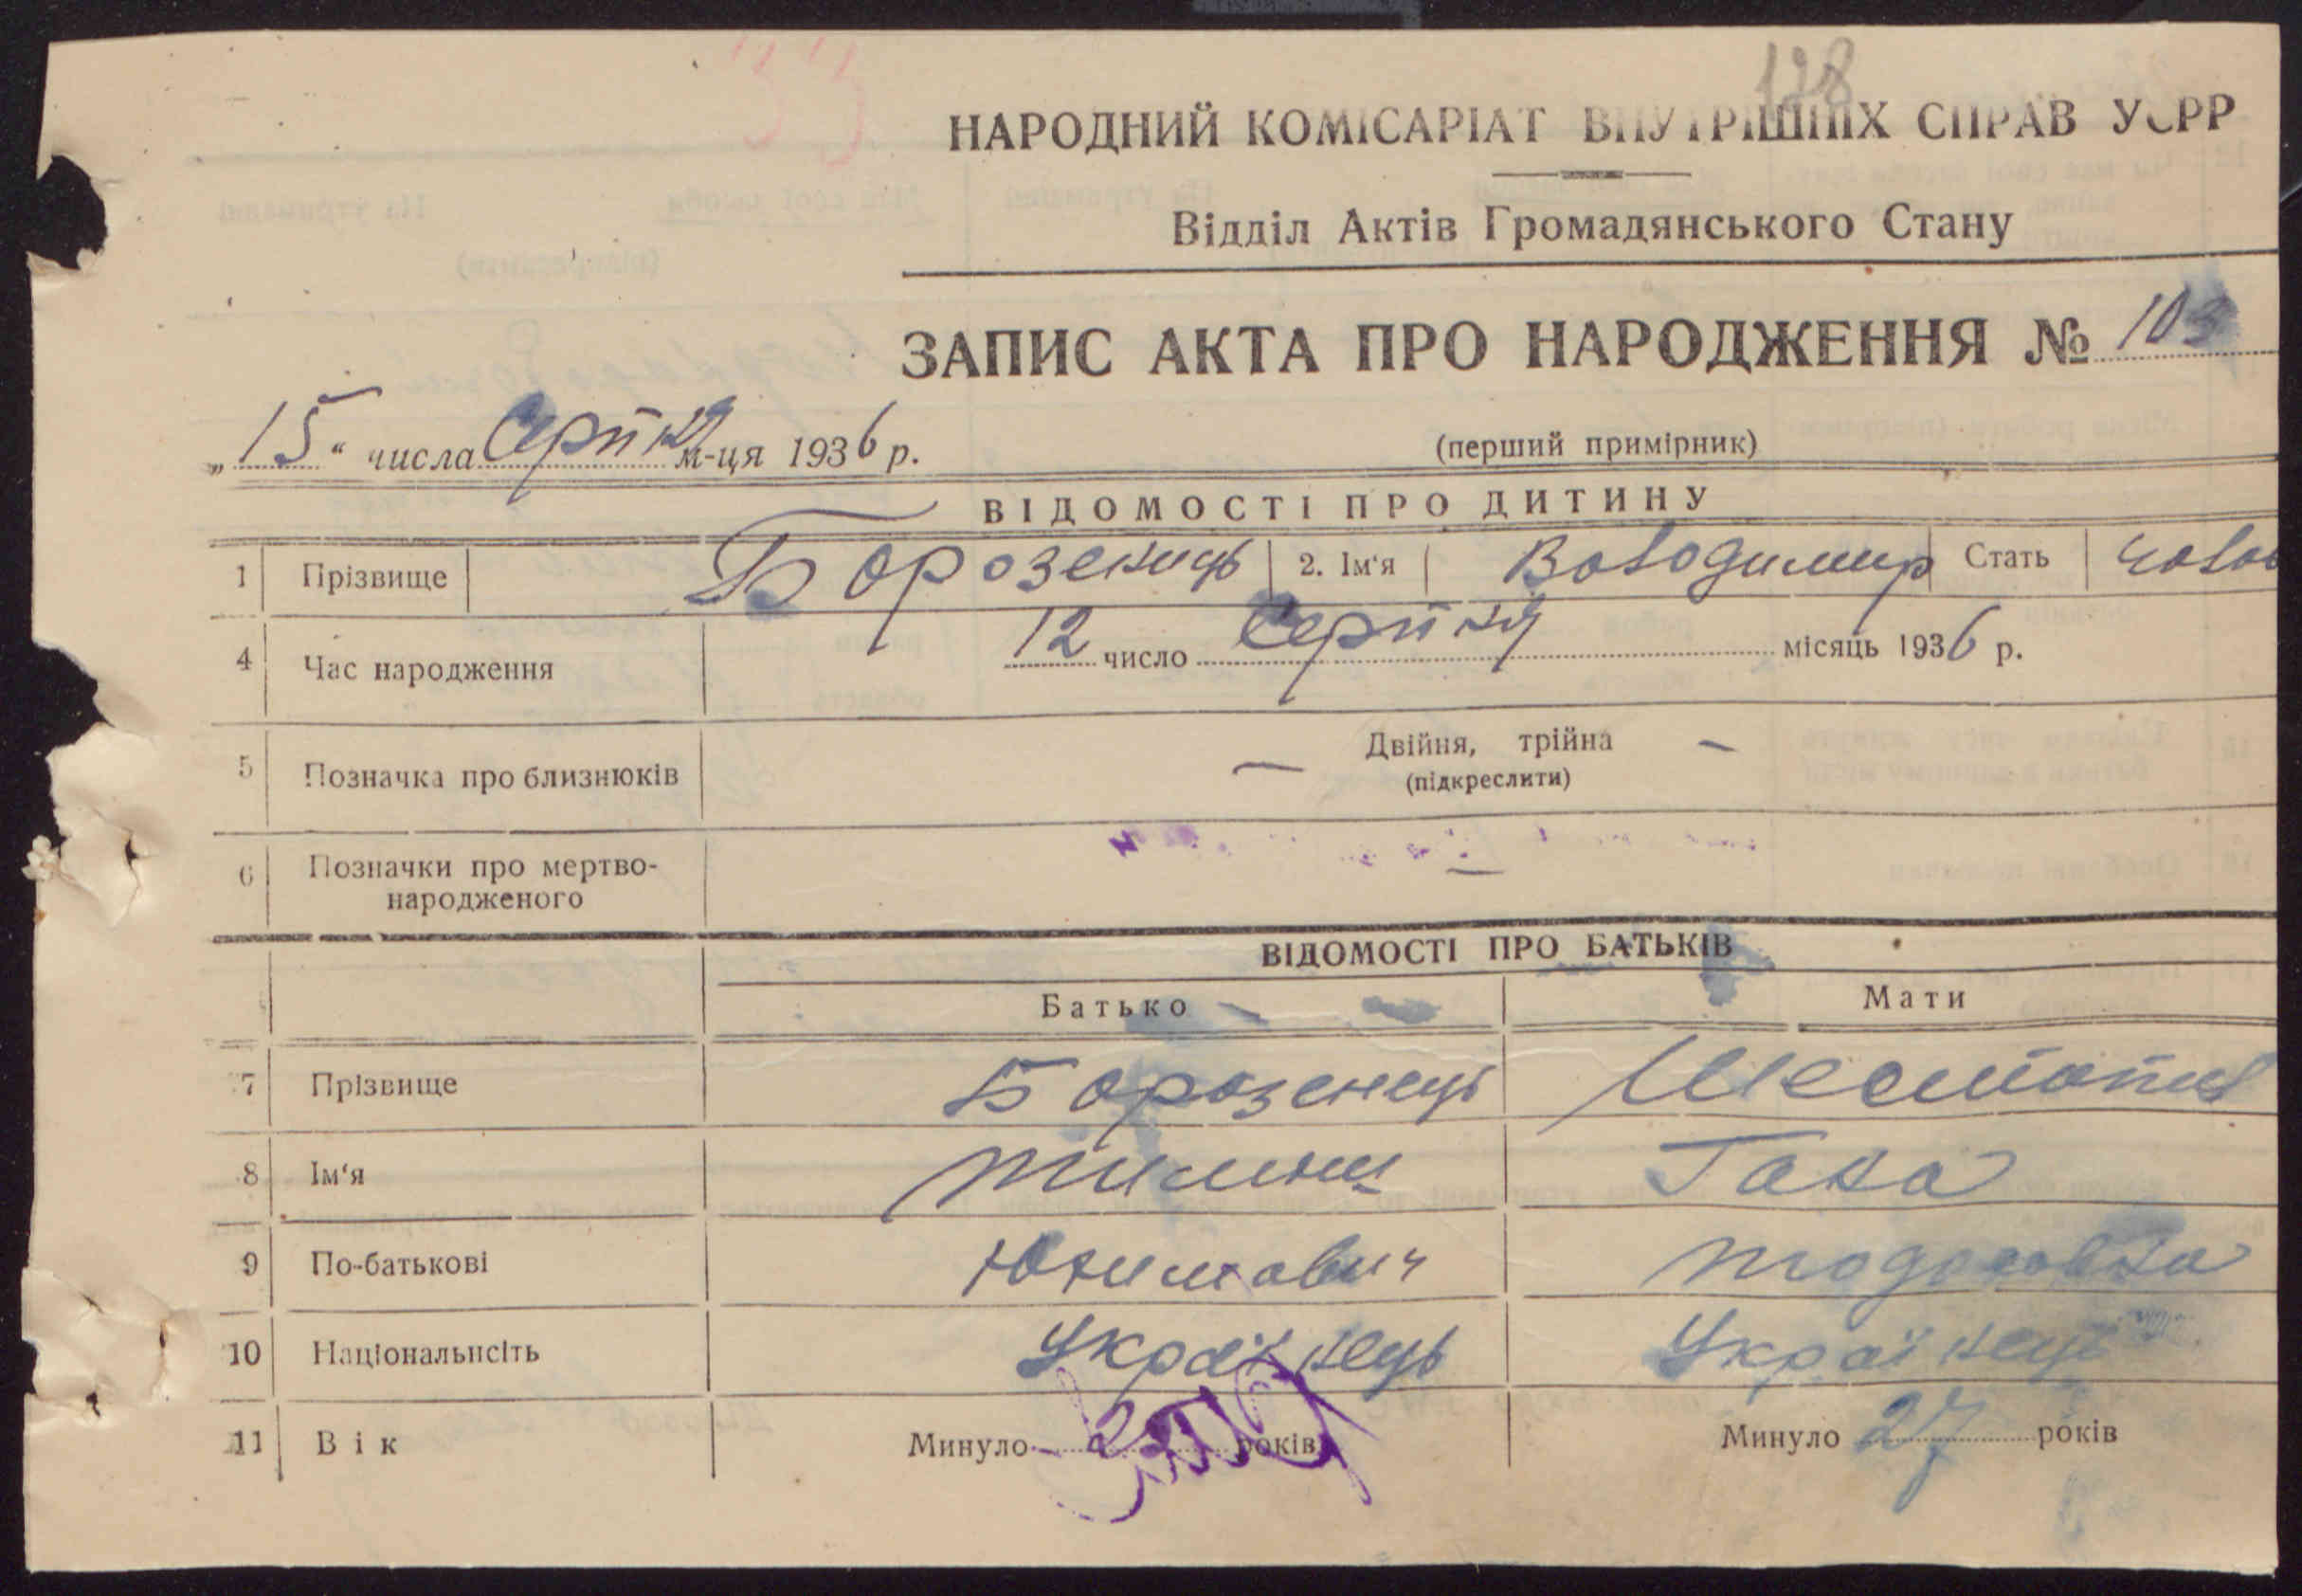 128
НАРОДНИЙ КОМІСАРІАТ ВНУТРІШНІХ СПРАВ УСРР
Відділ Актів Громадянського Стану
ЗАПИС АКТА ПРО НАРОДЖЕННЯ № 103
„15“ числа Серпня м-ця 1936 р.
(перший примірник)
ВІДОМОСТІ ПРО ДИТИНУ
1 Прізвище Борозенець 2. Ім'я Володимир Стать чолов
4 Час народження 12 число Серпня місяць 1936 р.
5 Позначка про близнюків — Двійня, трійна —
(підкреслити)
6 Позначки про мертво-
народженого —
ВІДОМОСТІ ПРО БАТЬКІВ
Батько Мати
7 Прізвище Борозенець
8 Ім'я Тиміш Гана
9 По-батькові Юхимович Тодоровна
10 Національність Українець Українець
11 Вік Минуло років Минуло 27 років